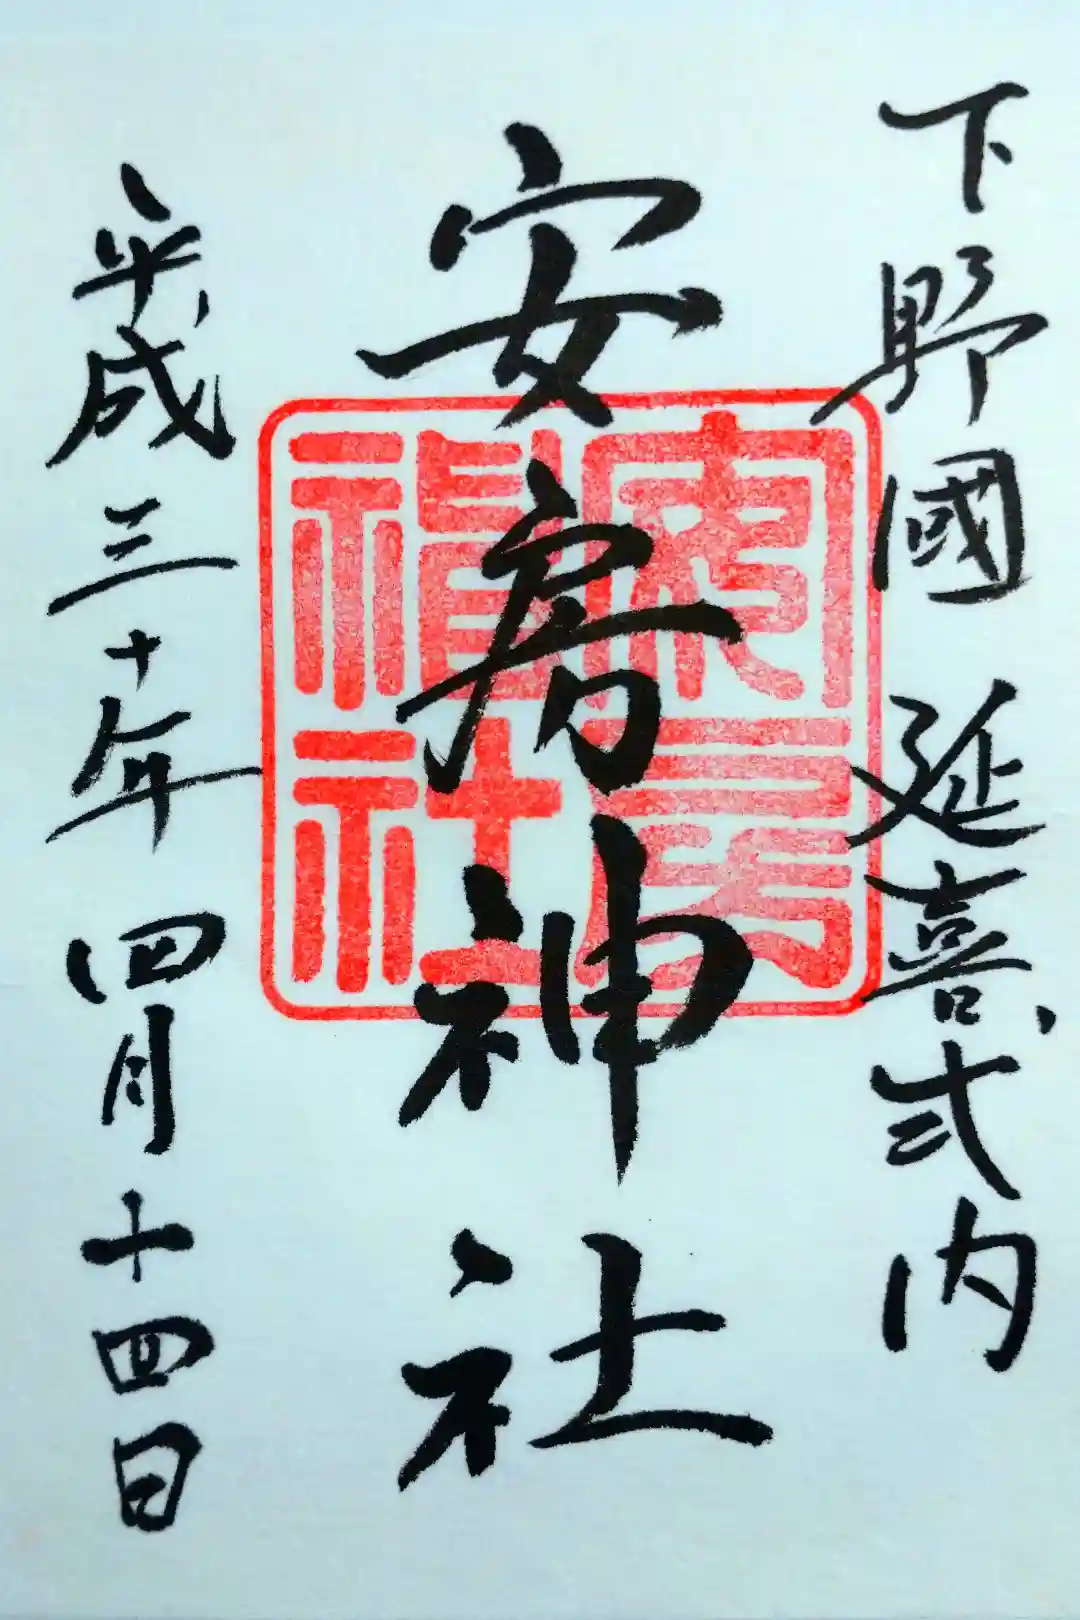 下野國 延喜式内
安房神社
安房神社
平成三十年四月十四日